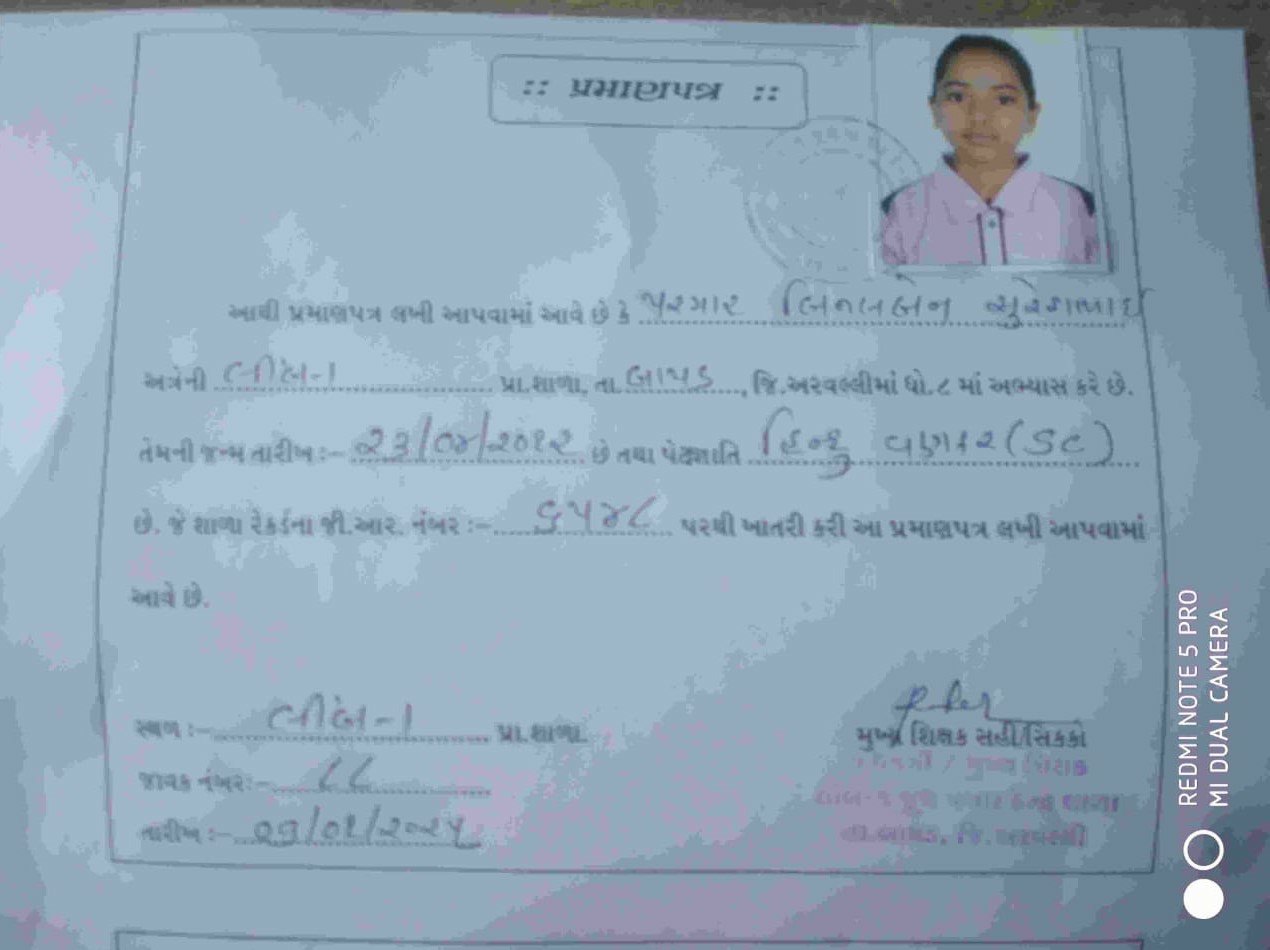 :: પ્રમાણપત્ર ::
આથી પ્રમાણપત્ર લખી આપવામાં આવે છે કે પરમાર બિનલબેન સુરેશભાઈ
અત્રેની લીંબ-૧ પ્રા.શાળા, તા. બાયડ, જિ.અરવલ્લીમાં ધો.૮ માં અભ્યાસ કરે છે.
તેમની જન્મ તારીખ :- ૨૩/૦૪/૨૦૧૨ છે તથા પેટાજ્ઞાતિ હિન્દુ વણકર (SC)
છે. જે શાળા રેકર્ડના જી.આર. નંબર :- ૬૫૪૮ પરથી ખાતરી કરી આ પ્રમાણપત્ર લખી આપવામાં
આવે છે.
સ્થળ :- લીંબ-૧ પ્રા.શાળા.
જાવક નંબર:- ૮૮
તારીખ :- ૦૩/૦૧/૨૦૨૫
મુખ્ય શિક્ષક સહી/સિકકો
તા.બાયડ, જિ.અરવલ્લી
REDMI NOTE 5 PRO
MI DUAL CAMERA